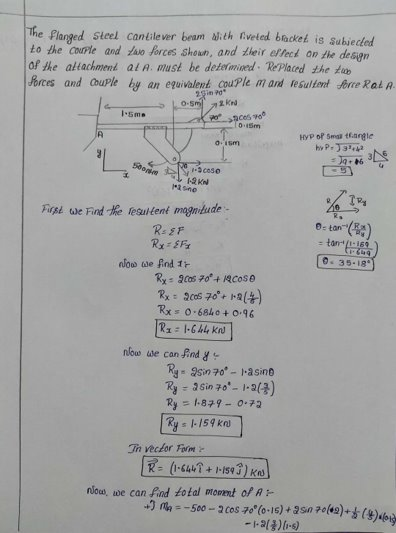 The flanged steel cantilever beam with riveted bracket is subjected
to the couple and two forces shown, and their effect on the design
of the attachment at A must be determined. Replaced the two
forces and couple by an equivalent couple M and resultent force R at A.
2sin70°
1.5m
0.5m
2KN
70°
2cos70°
0.15m
A
0.15m
y
x
500Nm
θ
1.2cosθ
3
4
1.2KN
1.2sinθ
HYP of small triangle
hyp = √3²+4²
= √9+16
= 5
3
5
4
R
Ry
θ
Rx
θ = tan⁻¹(Rx/Ry)
= tan⁻¹(1.159/1.644)
θ = 35.18°
First we find the resultent magnitude:-
R = ΣF
Rx = ΣFx
Now we find x:-
Rx = 2cos70° + 1.2cosθ
Rx = 2cos70° + 1.2(4/5)
Rx = 0.6840 + 0.96
Rx = 1.644 KN
Now we can find y:-
Ry = 2sin70° - 1.2sinθ
Ry = 2sin70° - 1.2(3/5)
Ry = 1.879 - 0.72
Ry = 1.159KN
In vector Form:-
R⃗ = (1.644î + 1.159ĵ) KN
Now, we can find total moment of A:-
MA = -500 - 2cos70°(0.15) + 2sin70
-1.2(3/5)(1.5)